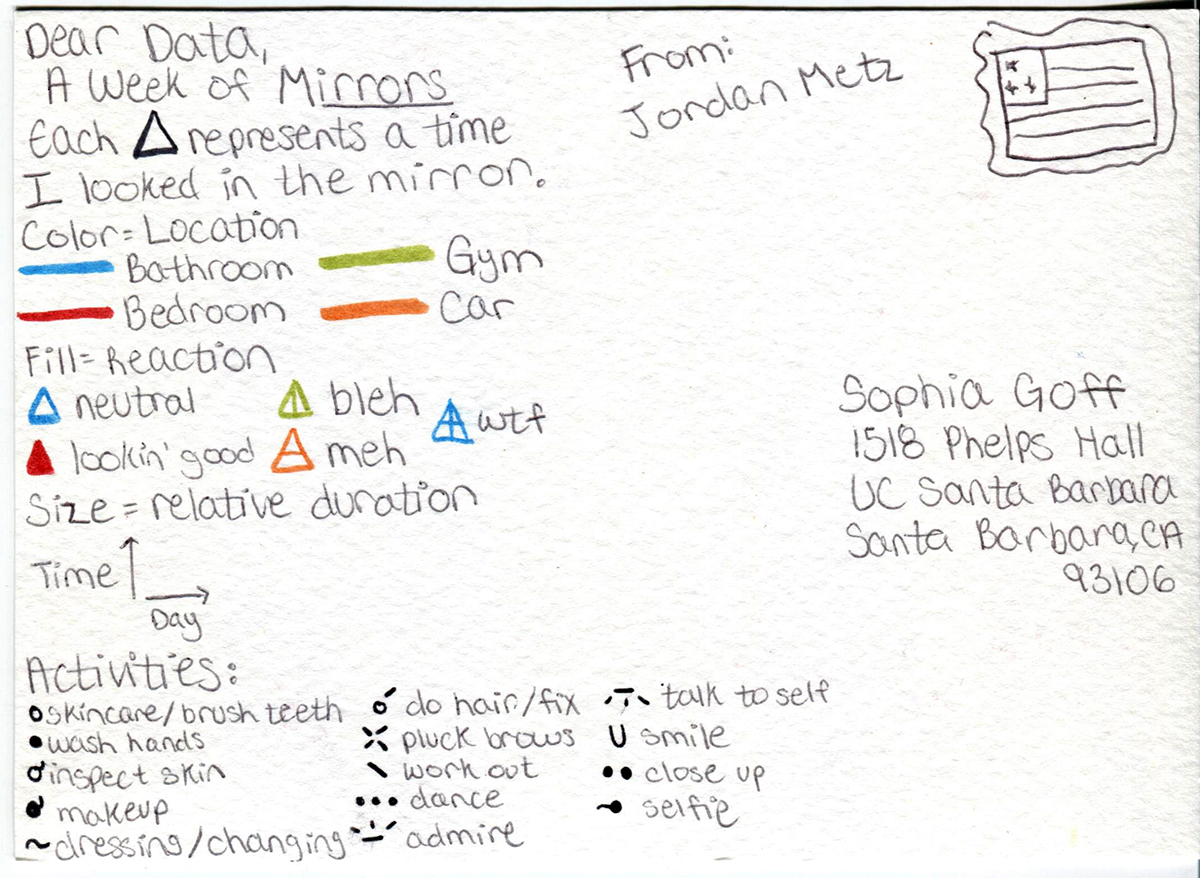 Dear Data,
A Week of Mirrors
Each △ represents a time
I looked in the mirror.
Color = Location
Bathroom
Gym
Bedroom
Car
Fill = Reaction
neutral
bleh
wtf
lookin' good
meh
Size = relative duration
Time
Day
Activities:
skincare/brush teeth
wash hands
inspect skin
makeup
~dressing/changing
do hair/fix
pluck brows
work out
dance
admire
talk to self
smile
close up
selfie
From:
Jordan Metz
Sophia Goff
1518 Phelps Hall
UC Santa Barbara
Santa Barbara, CA
93106